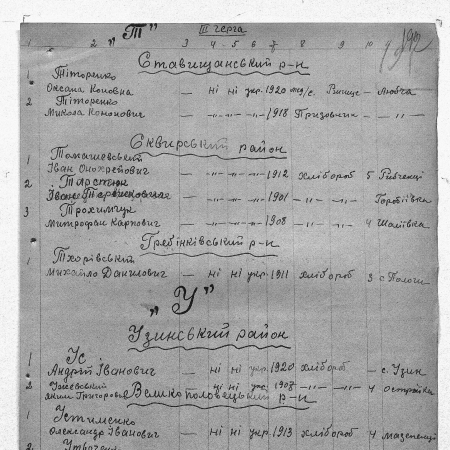 "Т" III черга
1 2 3 4 5 6 7 8 9 10
Ставищанський р-н
1 Тіторенко
Оксана Кононівна — ні ні укр. 1920 — Любча
2 Тіторенко
Микола Кононович — -"- -"- -"- 1918 Призовник — -"-
Сквирський район
1 Томашевський
Іван Онохрейович — -"- -"- -"- 1912 хлібороб 5
2
— -"- -"- -"- 1901 -"- -"-
3 Трохимчук
Митрофан Карпович — -"- -"- -"- 1908 -"- -"- 4 Шаліївка
Гребінківський р-н
1 Тхорівський
Михайло Данилович — ні ні укр. 1911 хлібороб 3 с. Пологи
"У"
Узинський район
1 Ус
Андрій Іванович — ні ні укр. 1920 хлібороб — с. Узин
2
— ні ні укр. 1908 -"- -"- 4 Острійки
Великополовецький р-н
1 Устименко
Олександр Іванович — ні ні укр. 1913 хлібороб 4
2.